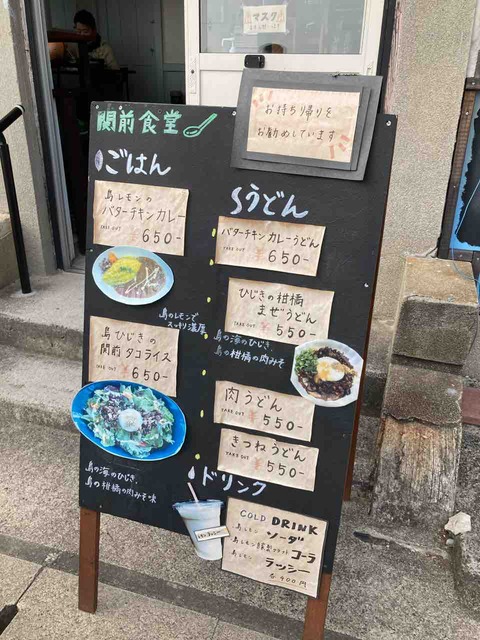 マスク
お持ち帰りを
お勧めしています
関前食堂
ごはん
島レモンの
バターチキンカレー
TAKE OUT ¥650-
島のレモンで
スッキリ濃厚
島ひじきの
関前タコライス
TAKE OUT ¥650-
島の海のひじき、
島の柑橘の肉みそ味
うどん
バターチキンカレーうどん
TAKE OUT ¥650-
ひじきの柑橘
まぜうどん
TAKE OUT ¥550-
島の海のひじき、
島の柑橘の肉みそ
肉うどん
TAKE OUT ¥550-
きつねうどん
TAKE OUT ¥550-
ドリンク
COLD DRINK
島レモン ソーダ
島レモン クラフトコーラ
島レモン ラッシー
各400円